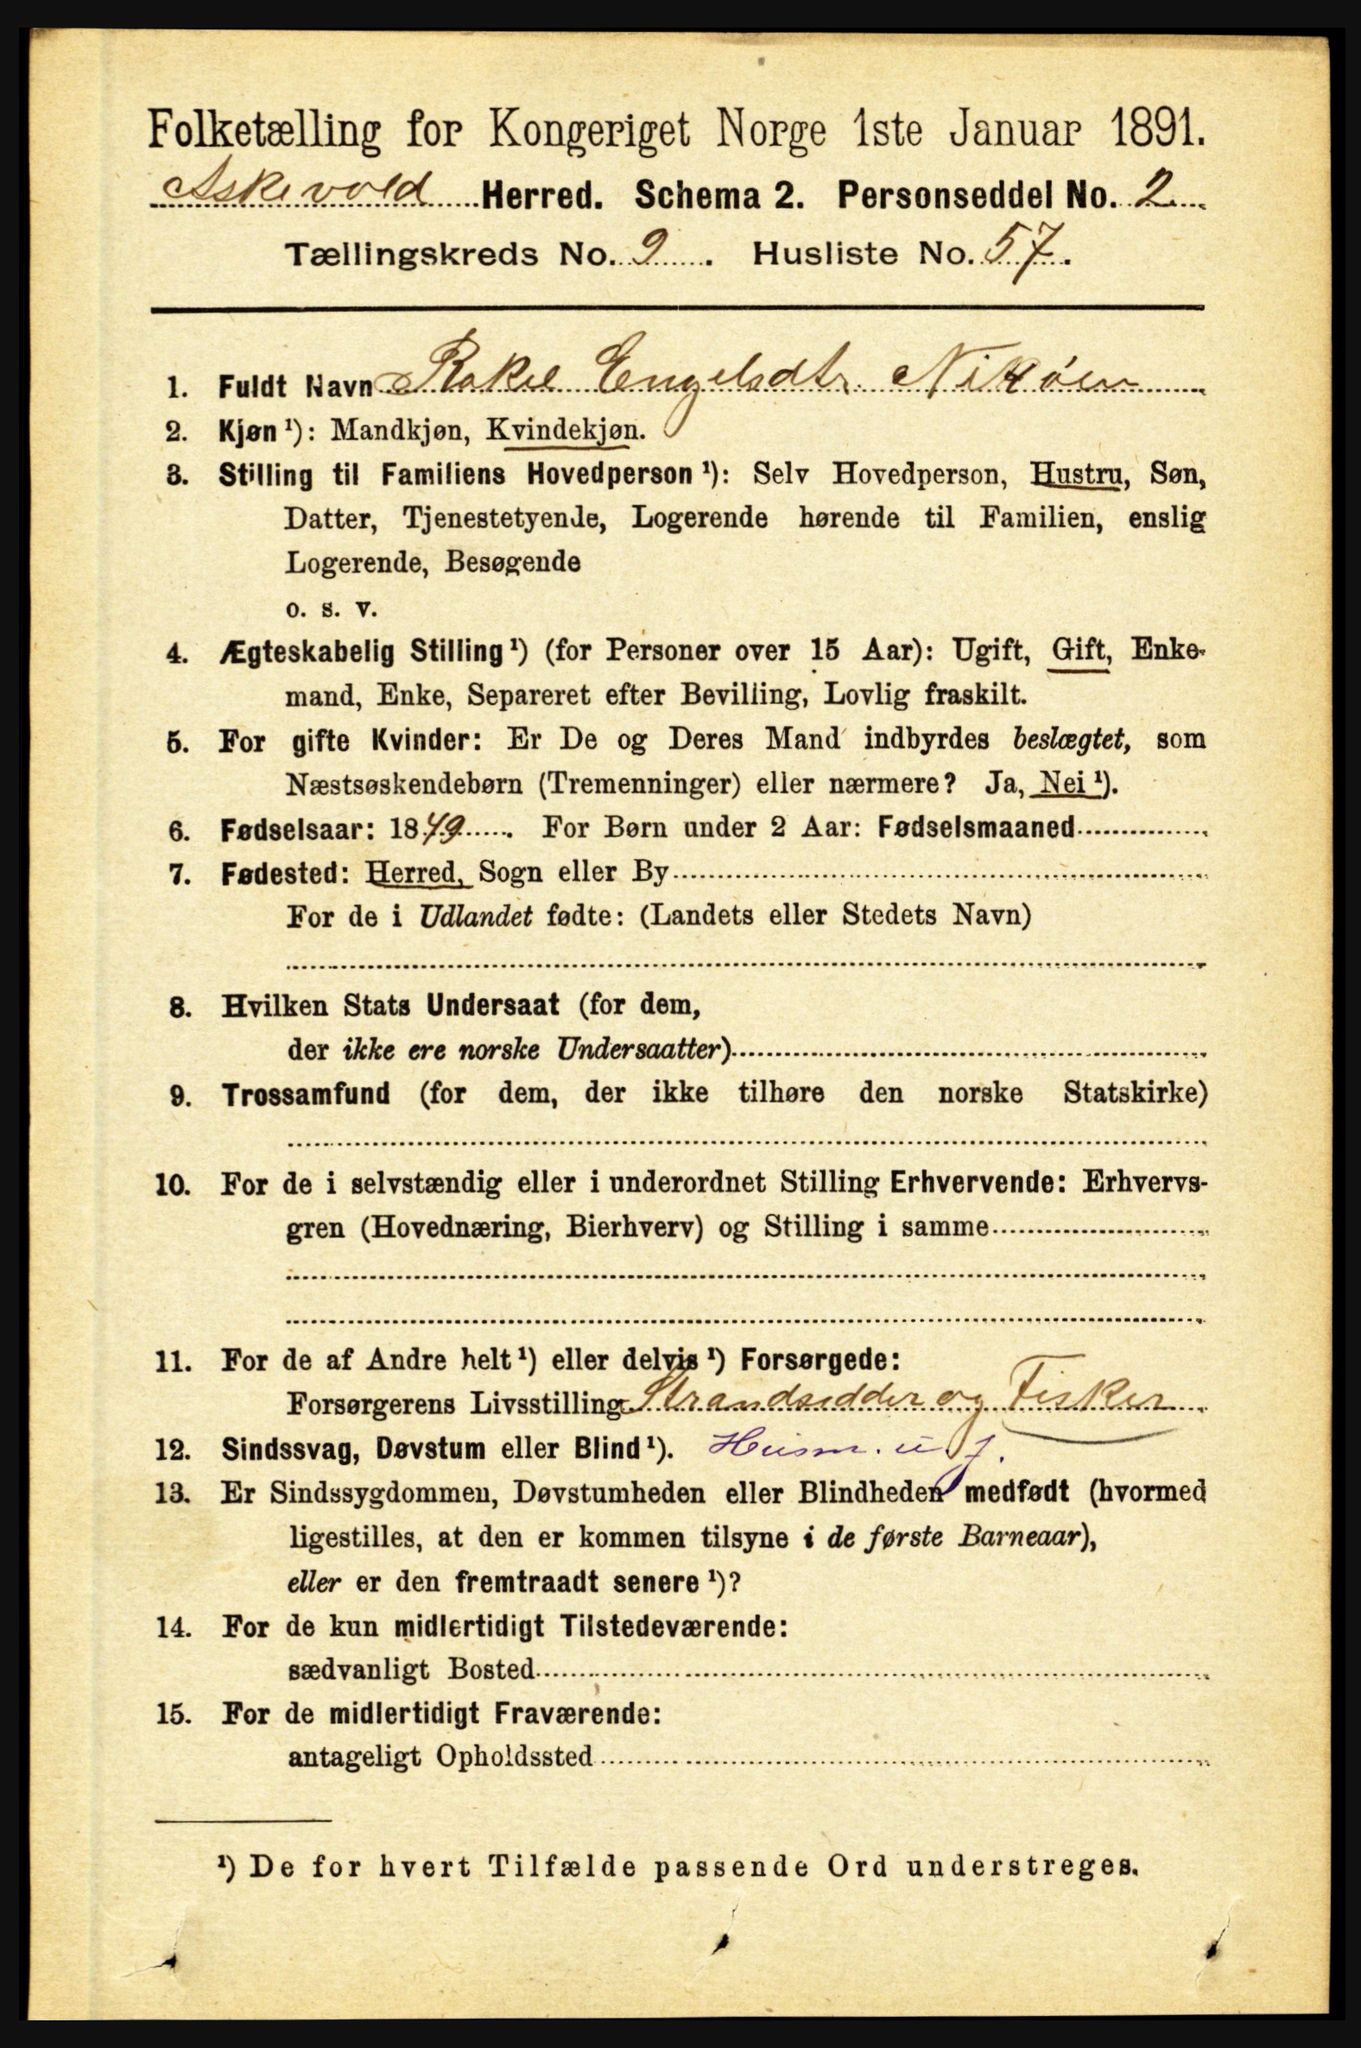 Folketælling for Kongeriget Norge 1ste Januar 1891.
Askevold Herred. Schema 2. Personseddel No. 2
Tællingskreds No. 9. Husliste No. 57.
1. Fuldt Navn Rakel Engelsdtr. Nikøen
2. Kjøn ¹): Mandkjøn, Kvindekjøn.
3. Stilling til Familiens Hovedperson ¹): Selv Hovedperson, Hustru, Søn,
Datter, Tjenestetyende, Logerende hørende til Familien, enslig
Logerende, Besøgende
o. s. v.
4. Ægteskabelig Stilling ¹) (for Personer over 15 Aar): Ugift, Gift, Enke-
mand, Enke, Separeret efter Bevilling, Lovlig fraskilt.
5. For gifte Kvinder: Er De og Deres Mand indbyrdes beslægtet, som
Næstsøskendebørn (Tremenninger) eller nærmere? Ja, Nei ¹).
6. Fødselsaar: 1849. For Børn under 2 Aar: Fødselsmaaned
7. Fødested: Herred, Sogn eller By
For de i Udlandet fødte: (Landets eller Stedets Navn)
8. Hvilken Stats Undersaat (for dem,
der ikke ere norske Undersaatter)
9. Trossamfund (for dem, der ikke tilhøre den norske Statskirke)
10. For de i selvstændig eller i underordnet Stilling Erhvervende: Erhvervs-
gren (Hovednæring, Bierhverv) og Stilling i samme
11. For de af Andre helt ¹) eller delvis ¹) Forsørgede:
Forsørgerens Livsstilling Strandsidder og Fisker
12. Sindssvag, Døvstum eller Blind ¹). Husm. u j.
13. Er Sindssygdommen, Døvstumheden eller Blindheden medfødt (hvormed
ligestilles, at den er kommen tilsyne i de første Barneaar),
eller er den fremtraadt senere ¹)?
14. For de kun midlertidigt Tilstedeværende:
sædvanligt Bosted
15. For de midlertidigt Fraværende:
antageligt Opholdssted
¹) De for hvert Tilfælde passende Ord understreges.